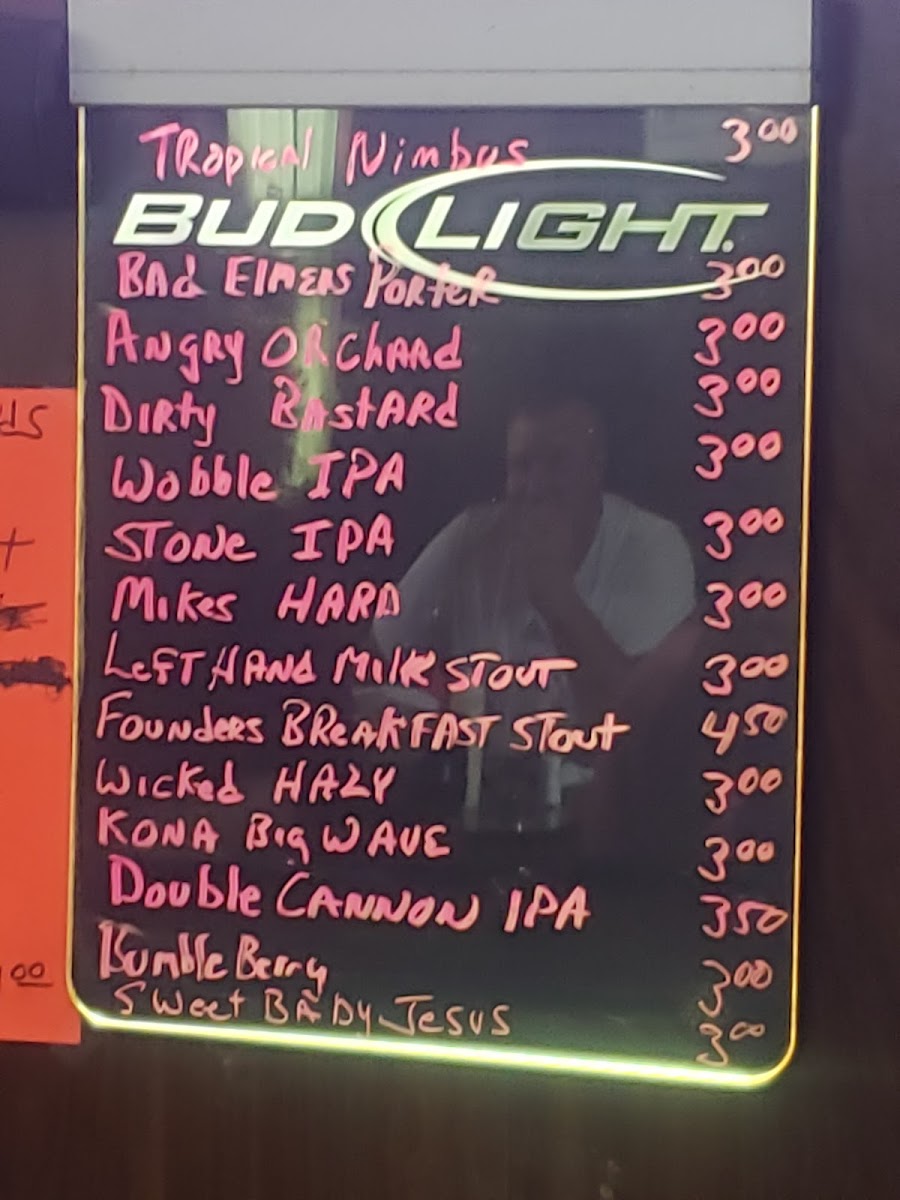 Tropical Nimbus 3.00
BUD LIGHT.
Bad Elmers Porter 3.00
Angry Orchard 3.00
Dirty Bastard 3.00
Wobble IPA 3.00
Stone IPA 3.00
Mikes Hard 3.00
Left Hand Milk Stout 3.00
Founders Breakfast Stout 4.50
Wicked Hazy 3.00
Kona Big Wave 3.00
Double Cannon IPA 3.50
Bumble Berry 3.00
Sweet Baby Jesus 3.00